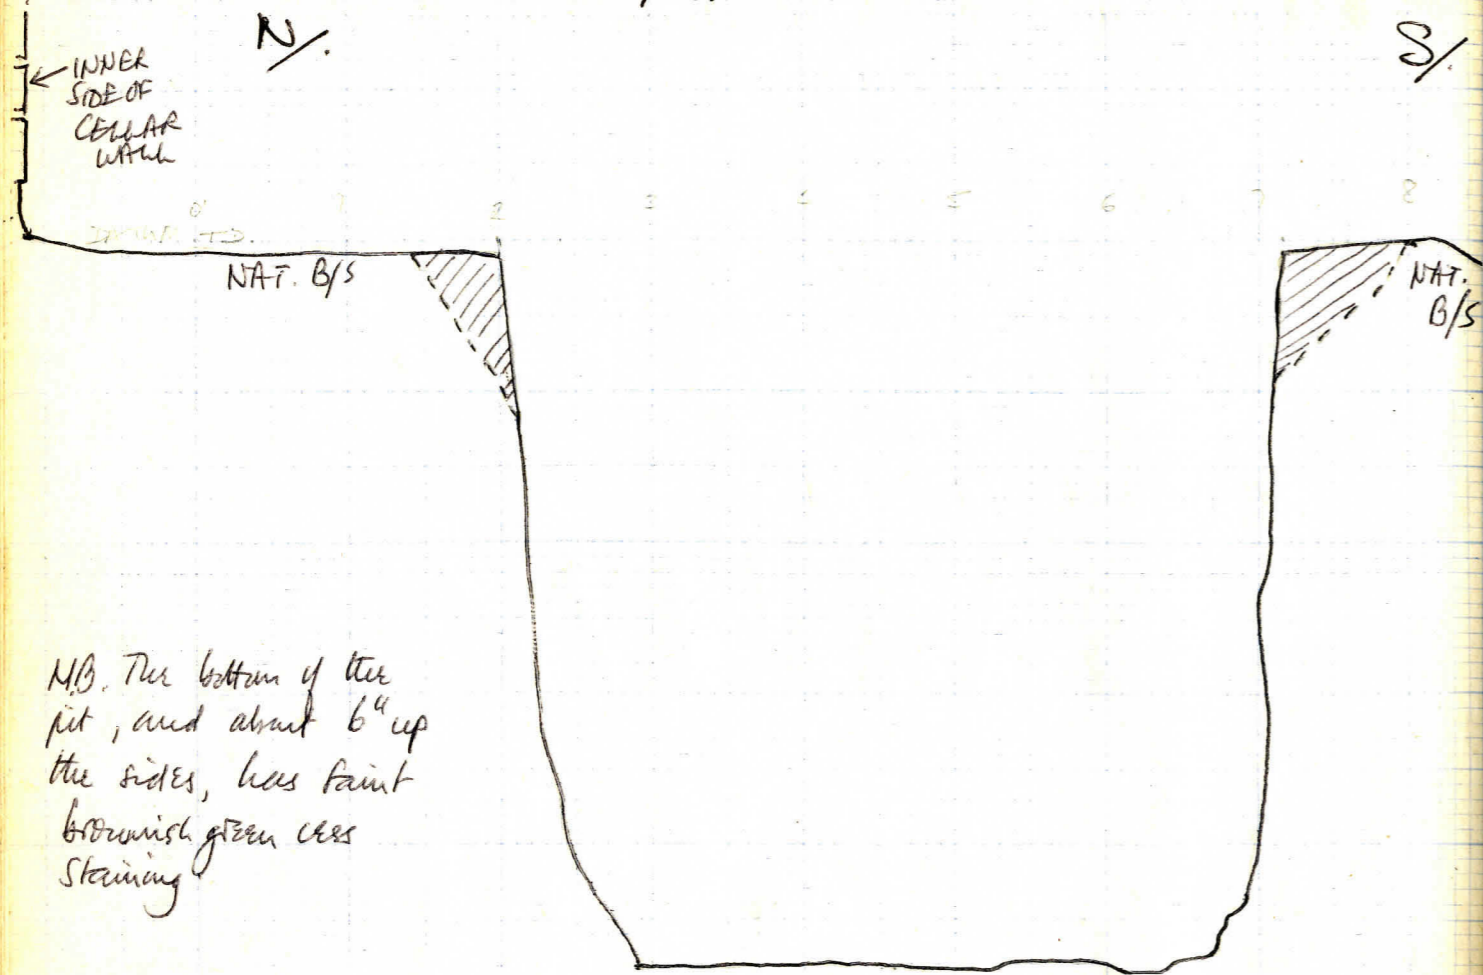 N/.
S/.
INNER
SIDE OF
CELLAR
WALL
0' 1 2 3 4 5 6 7 8
NAT. B/S
NAT.
B/S
N.B. The bottom of the
pit, and about 6" up
the sides, has faint
brownish green cess
staining